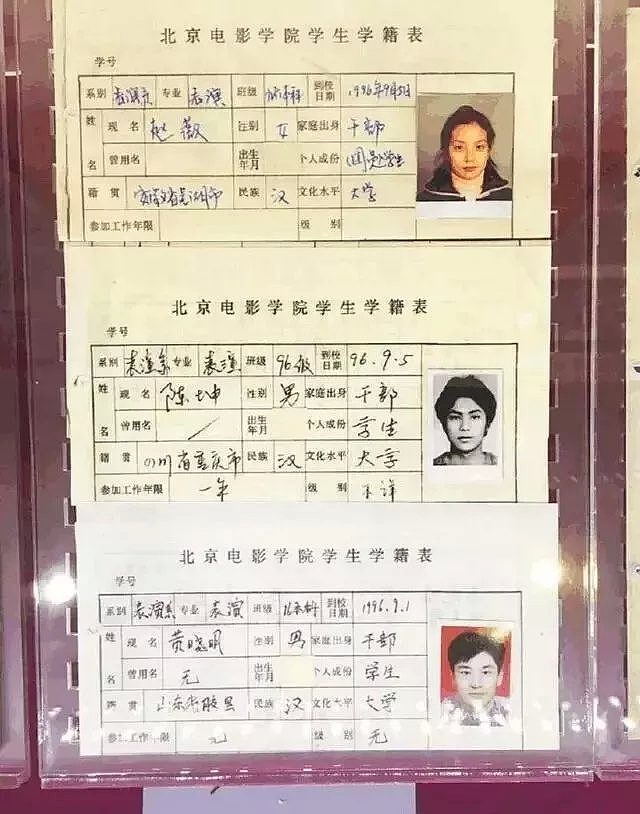 北京电影学院学生学籍表
学号
系别 表演系 专业 表演 班级 到校日期 1996年9月5日
姓名 现名 赵薇 性别 女 家庭出身 干部
曾用名 出生年月 个人成份 团员学生
籍贯 安徽省芜湖市 民族 汉 文化水平 大学
参加工作年限 级别
北京电影学院学生学籍表
学号
系别 表演系 专业 表演 班级 96级 到校日期 96.9.5
姓名 现名 陈坤 性别 男 家庭出身 干部
曾用名 / 出生年月 个人成份 学生
籍贯 四川省重庆市 民族 汉 文化水平 大学
参加工作年限 一年 级别
北京电影学院学生学籍表
学号
系别 表演系 专业 表演 班级 到校日期 1996.9.1
姓名 现名 黄晓明 性别 男 家庭出身 干部
曾用名 无 出生年月 个人成份 学生
籍贯 山东省胶县 民族 汉 文化水平 大学
参加工作年限 无 级别 无